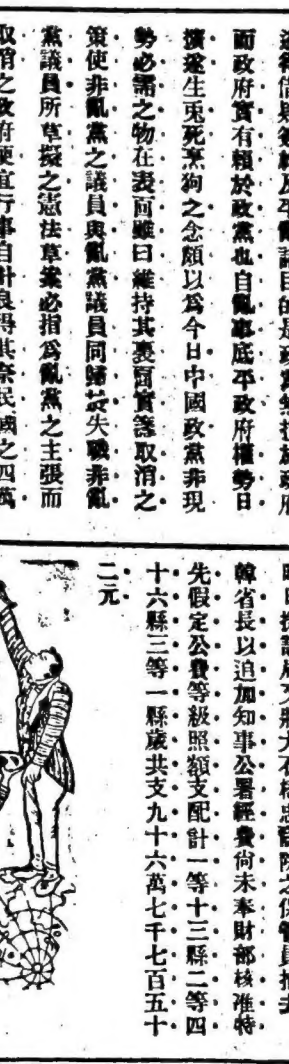 而政府實有賴於政黨也自亂事底平政府權勢日
擴遂生兎死烹狗之念頗以爲今日中國政黨非現
勢必需之物在表面雖曰維持其裏面實謀取消之
策使非亂黨之議員與亂黨議員同歸於失職非亂
黨議員所草擬之憲法草案必指爲亂黨之主張而
取消之政府便宜行事自計良得其奈民國之四萬
韓省長以追加知事公署經費尙未奉財部核准特
先假定公費等級照額支配計一等十三縣二等四
十六縣三等一縣歲共支九十六萬七千七百五十
二元